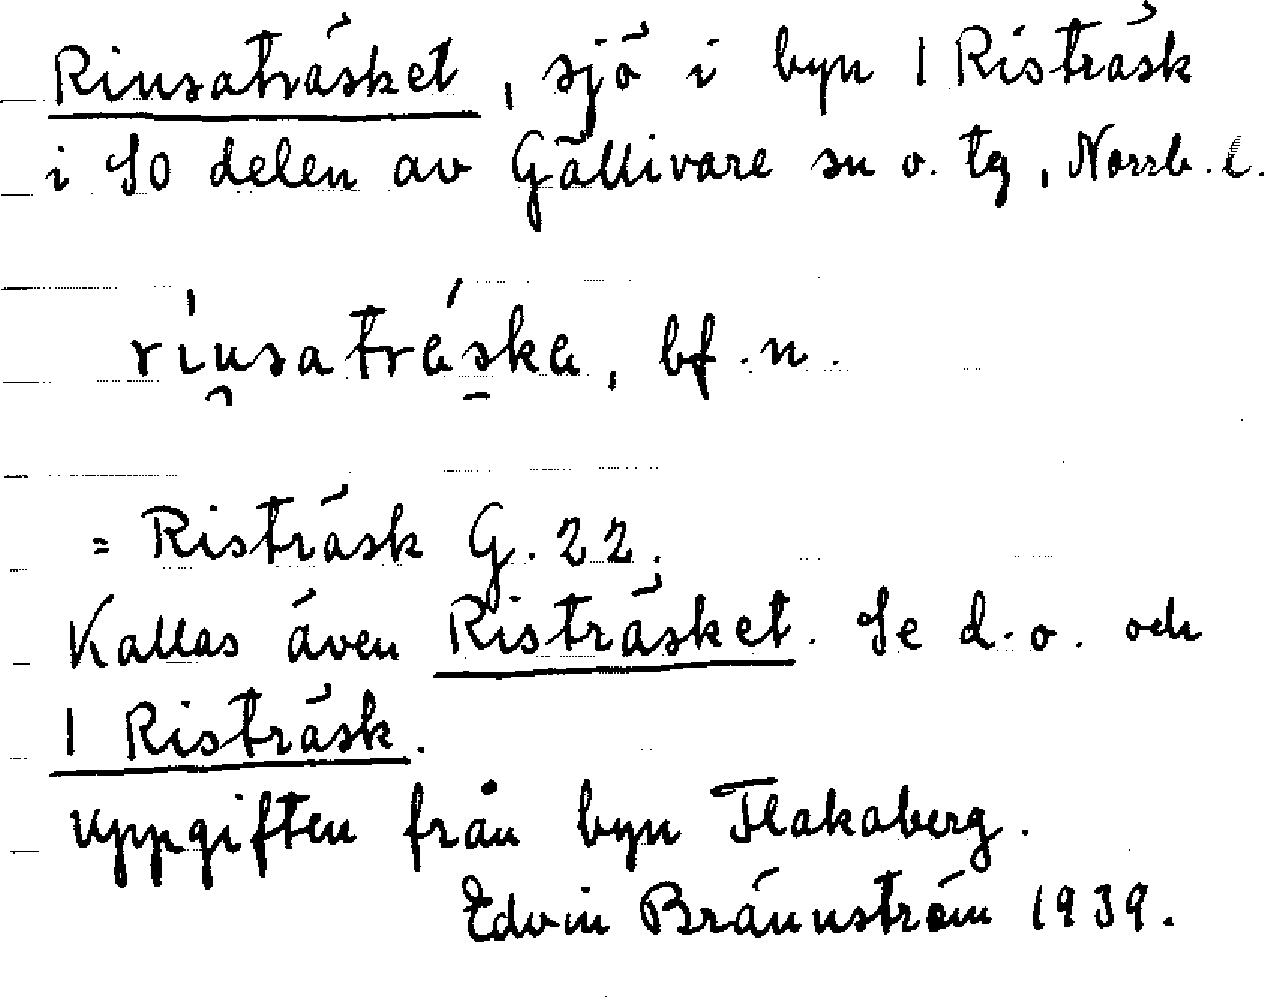 Rinsaträsket, sjö i byn 1 Risträsk
i SO delen av Gällivare sn o. tg, Norrb. l.
rinsaträske, bf. n.
= Risträsk G. 22.
Kallas även Risträsket. Se d. o. och
1 Risträsk.
Uppgiften från byn Flakaberg.
Edvin Brännström 1939.